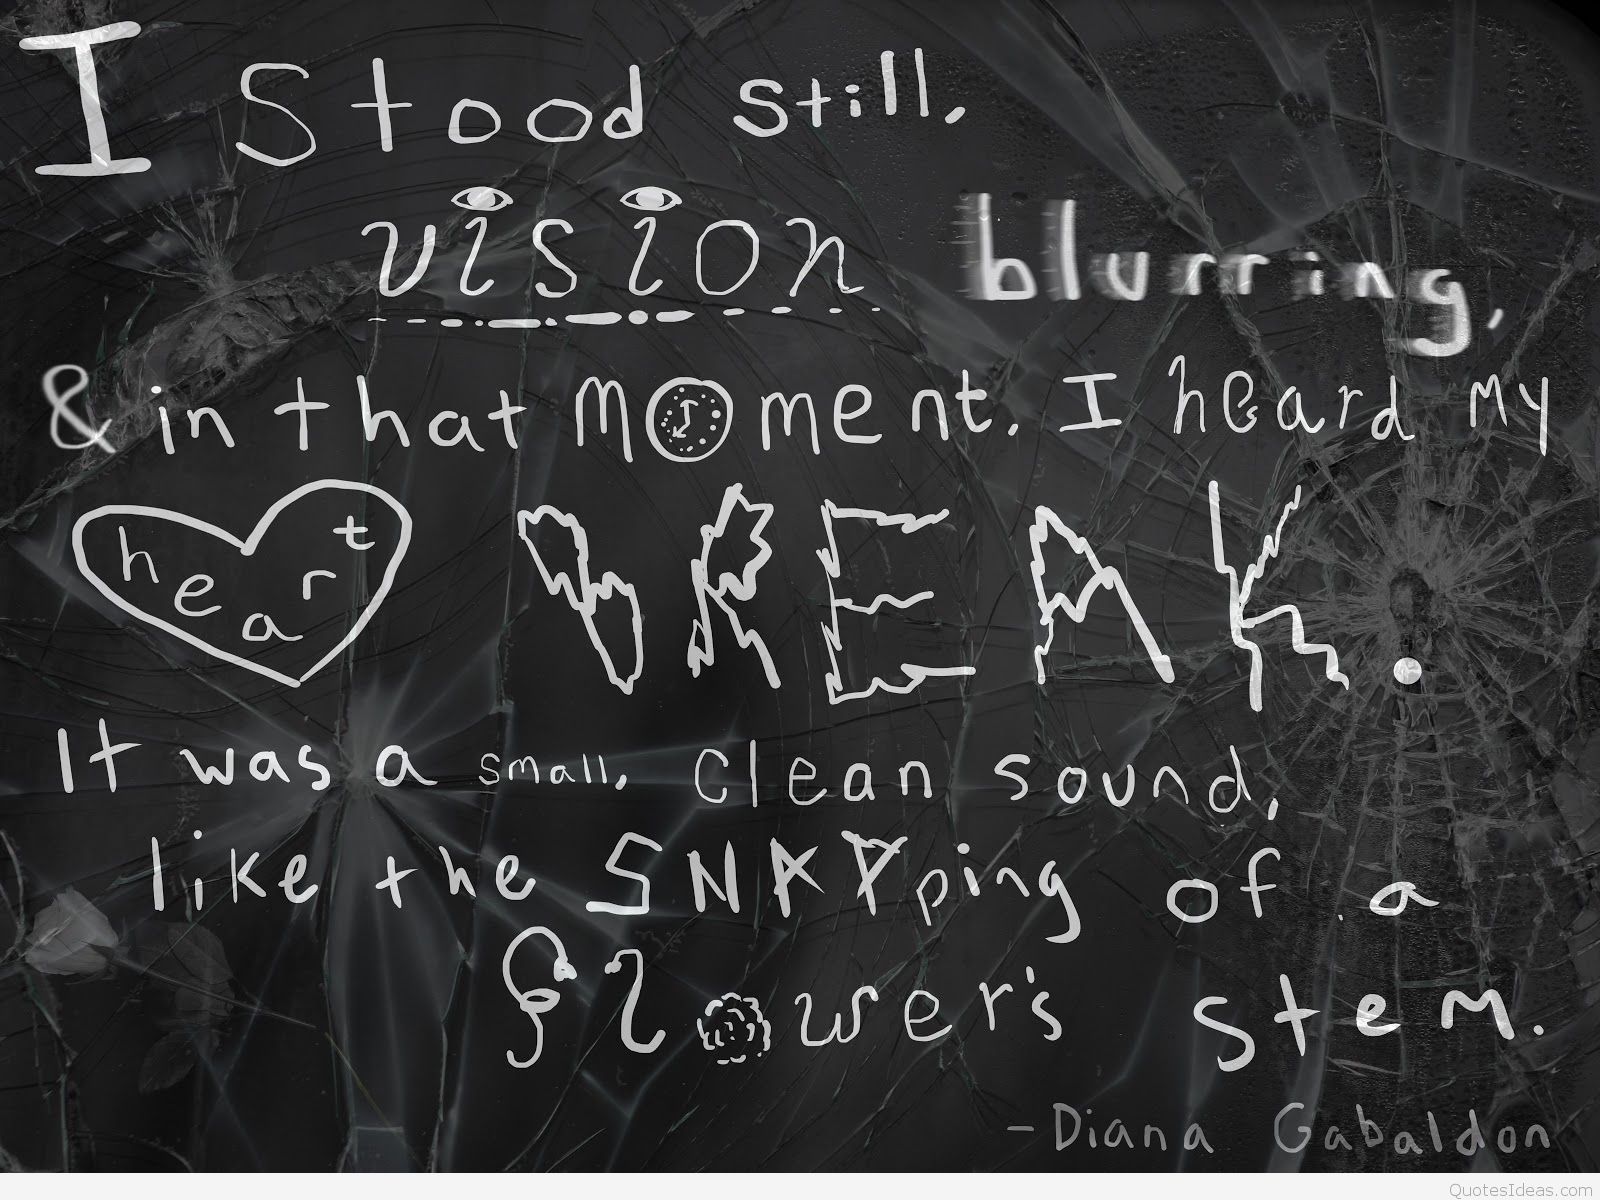 I stood still,
vision blurring,
& in that moment, I heard my
heart BREAK.
It was a small, clean sound,
like the SNAPping of a
flower's stem.
- Diana Gabaldon
QuotesIdeas.com